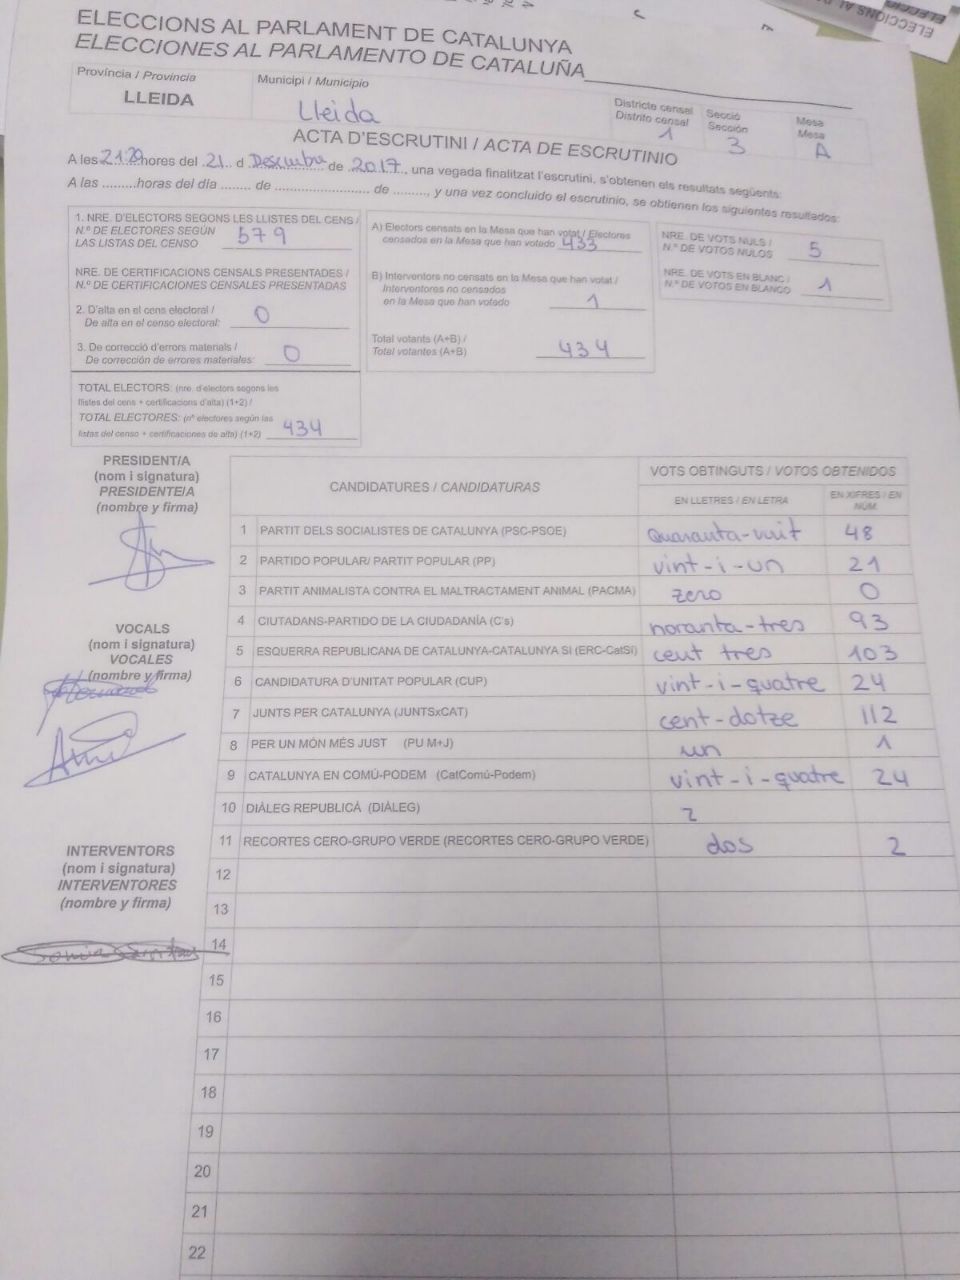 ELECCIONS AL PARLAMENT DE CATALUNYA
ELECCIONES AL PARLAMENTO DE CATALUÑA
Província / Provincia
LLEIDA
Municipi / Municipio
Lleida
Districte censal
Distrito censal
1
Secció
Sección
3
Mesa
Mesa
A
ACTA D'ESCRUTINI / ACTA DE ESCRUTINIO
A les 21:20 hores del 21 d Desembre de 2017, una vegada finalitzat l'escrutini, s'obtenen els resultats següents:
A las .........horas del día ........ de ......................... de ........., y una vez concluido el escrutinio, se obtienen los siguientes resultados:
1. NRE. D'ELECTORS SEGONS LES LLISTES DEL CENS /
N.º DE ELECTORES SEGÚN
LAS LISTAS DEL CENSO 579
NRE. DE CERTIFICACIONS CENSALS PRESENTADES /
N.º DE CERTIFICACIONES CENSALES PRESENTADAS
2. D'alta en el cens electoral /
De alta en el censo electoral: 0
3. De correcció d'errors materials /
De corrección de errores materiales: 0
TOTAL ELECTORS: (nre. d'electors segons les
llistes del cens + certificacions d'alta) (1+2) /
TOTAL ELECTORES: (nº electores según las
listas del censo + certificaciones de alta) (1+2) 434
A) Electors censats en la Mesa que han votat / Electores
censados en la Mesa que han votado 433
B) Interventors no censats en la Mesa que han votat /
Interventores no censados
en la Mesa que han votado 1
Total votants (A+B) /
Total votantes (A+B) 434
NRE. DE VOTS NULS /
N.º DE VOTOS NULOS 5
NRE. DE VOTS EN BLANC /
N.º DE VOTOS EN BLANCO 1
PRESIDENT/A
(nom i signatura)
PRESIDENTE/A
(nombre y firma)
VOCALS
(nom i signatura)
VOCALES
(nombre y firma)
INTERVENTORS
(nom i signatura)
INTERVENTORES
(nombre y firma)
CANDIDATURES / CANDIDATURAS
VOTS OBTINGUTS / VOTOS OBTENIDOS
EN LLETRES / EN LETRA
EN XIFRES / EN NÚM.
1 PARTIT DELS SOCIALISTES DE CATALUNYA (PSC-PSOE) Quaranta-vuit 48
2 PARTIDO POPULAR/ PARTIT POPULAR (PP) vint-i-un 21
3 PARTIT ANIMALISTA CONTRA EL MALTRACTAMENT ANIMAL (PACMA) zero 0
4 CIUTADANS-PARTIDO DE LA CIUDADANÍA (C's) noranta-tres 93
5 ESQUERRA REPUBLICANA DE CATALUNYA-CATALUNYA SI (ERC-CatSí) cent tres 103
6 CANDIDATURA D'UNITAT POPULAR (CUP) vint-i-quatre 24
7 JUNTS PER CATALUNYA (JUNTSxCAT) cent-dotze 112
8 PER UN MÓN MÉS JUST (PU M+J) un 1
9 CATALUNYA EN COMÚ-PODEM (CatComú-Podem) vint-i-quatre 24
10 DIÀLEG REPUBLICÀ (DIÀLEG) 2
11 RECORTES CERO-GRUPO VERDE (RECORTES CERO-GRUPO VERDE) dos 2
12
13
14
15
16
17
18
19
20
21
22